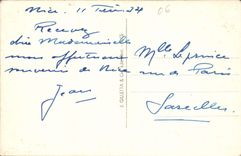 Nice, 11 Février 24
Recevez
chère Mademoiselle
mon affectueux
souvenir de Nice
Jean
Mlle
rue de Paris
Sarcelles